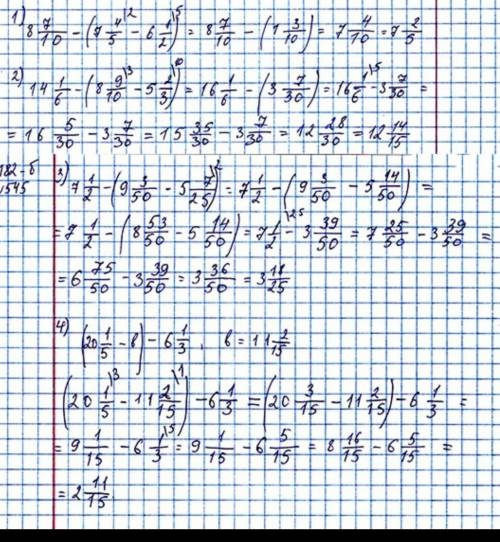 1) 8 7/10 - (7 4/5 \2 - 6 1/2 \5) = 8 7/10 - (1 3/10) = 7 4/10 = 7 2/5
2) 14 1/6 - (8 9/10 \3 - 5 2/3) = 16 1/6 - (3 7/30) = 16 1/6 \5 - 3 7/30 =
= 16 5/30 - 3 7/30 = 15 35/30 - 3 7/30 = 12 28/30 = 12 14/15
182-б
1545
3) 7 1/2 - (9 3/50 - 5 7/25 \2) = 7 1/2 - (9 3/50 - 5 14/50) =
= 7 1/2 - (8 53/50 - 5 14/50) = 7 1/2 \25 - 3 39/50 = 7 25/50 - 3 39/50 =
= 6 75/50 - 3 39/50 = 3 36/50 = 3 18/25
4) (20 1/5 - в) - 6 1/3, в = 11 2/15
(20 1/5 \3 - 11 2/15 \1) - 6 1/3 = (20 3/15 - 11 2/15) - 6 1/3 =
= 9 1/15 - 6 1/3 \5 = 9 1/15 - 6 5/15 = 8 16/15 - 6 5/15 =
= 2 11/15.